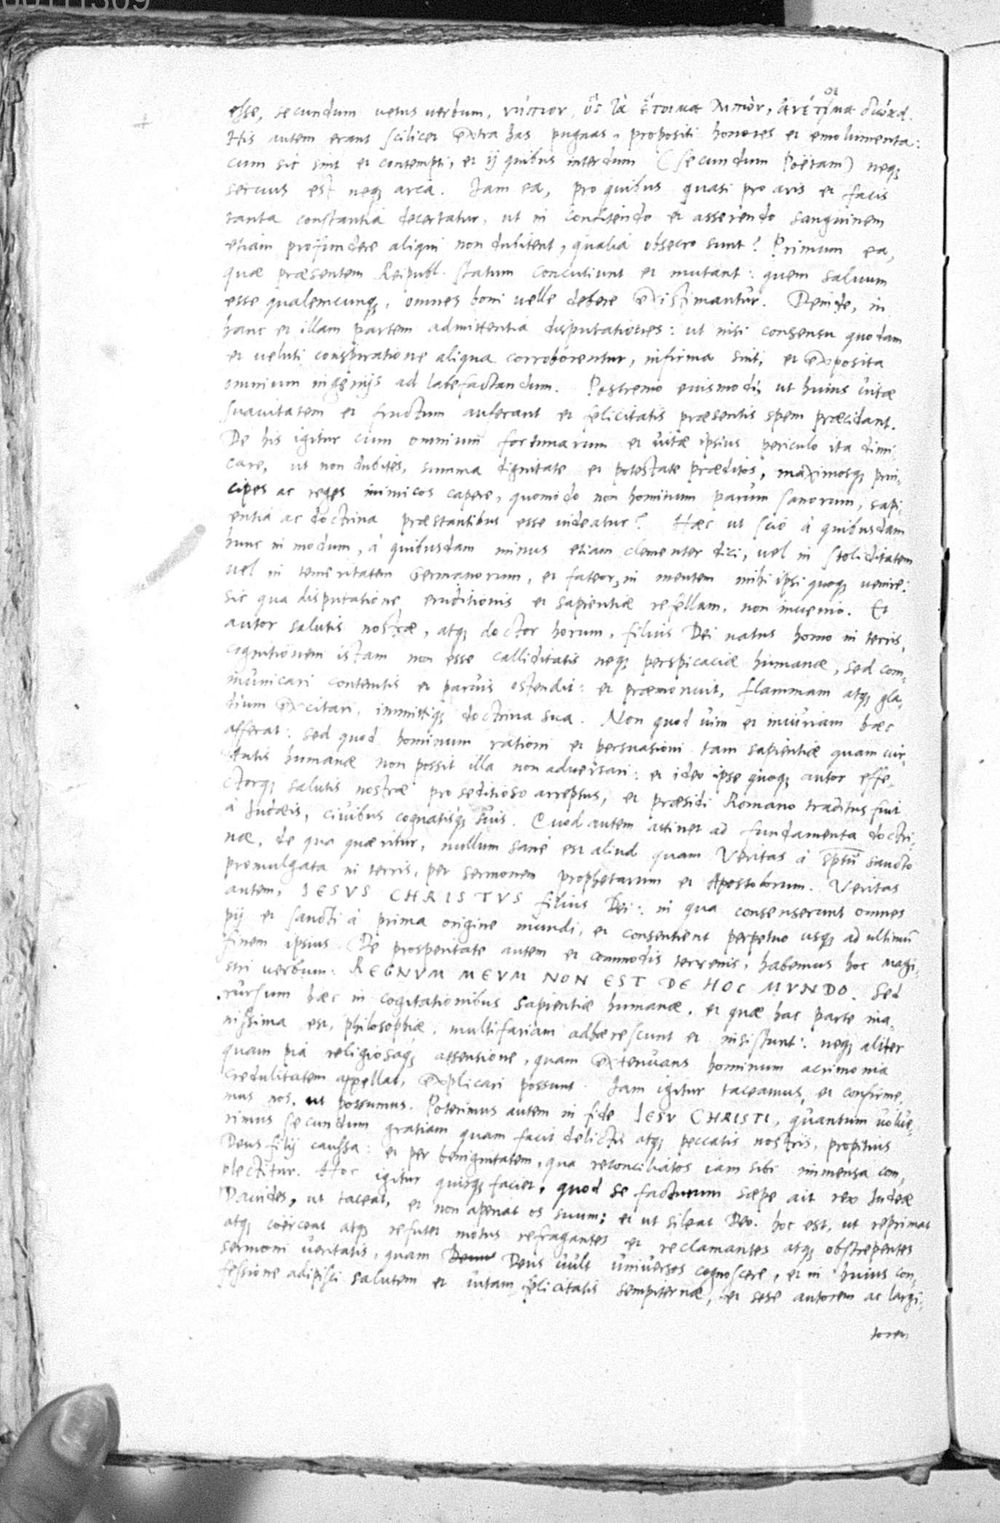 esse, secundum uetus uerbum, νήπιον, ὃς τὰ ἕτοιμα λιπὼν, ἀνέτοιμα διώκει.
His autem erant scilicet extra has pugnas, propositi honores et emolumenta:
cum sic sint et contempti, et ij quibus interdum (secundum Poëtam) neq;
seruus est neq; arca. Iam ea, pro quibus quasi pro aris et focis
tanta constantia decertatur, ut in confitendo et asserendo sanguinem
etiam profundere aliqui non dubitent, qualia obsecro sunt? Primum ea,
quæ præsentem Reipubl. statum concutiunt et mutant: quem saluum
esse qualemcunq;, omnes boni uelle debere existimantur. Deinde, in
hanc et illam partem admittentia disputationes: ut nisi consensu quodam
et ueluti conspiratione aliqua corroborentur, infirma sint, et exposita
omnium ingenijs ad labefactandum. Postremo eiusmodi, ut huius uitæ
suauitatem et fructum auferant et felicitatis præsentis spem præcidant.
De his igitur cum omnium fortunarum et uitæ ipsius periculo ita dimi-
care, ut non dubites, summa dignitate et potestate præditos, maximosq; prin-
cipes ac reges inimicos capere, quomodo non hominum parum sanorum, sapi-
entia ac doctrina præstantibus esse uideatur? Hæc ut scio à quibusdam
hunc in modum, à quibusdam minus etiam clementer dici, uel in stoliditatem
uel in temeritatem Germanorum, et fateor, in mentem mihi ipsi quoq; uenire:
sic qua disputatione, eruditionis et sapientiæ refellam, non inuenio. Et
autor salutis nostræ, atq; doctor horum, filius Dei natus homo in terris,
cognitionem istam non esse calliditatis neq; perspicaciæ humanæ, sed com-
municari contentis et paruis ostendit: et præmonuit, flammam atq; gla-
dium excitari, immittiq; doctrina sua. Non quod uim et iniuriam hæc
afferat: sed quod hominum rationi et persuasioni tam sapientiæ quam uir-
tutis humanæ non possit illa non aduersari: et ideo ipse quoq; autor effe-
ctorq; salutis nostræ pro seditioso arreptus, et præsidi Romano traditus fuit
à Iudæis, ciuibus cognatisq; suis. Quod autem attinet ad fundamenta doctri-
næ, de qua quæritur, nullum sane est aliud quam Veritas à sptū sancto
promulgata in terris, per sermonem prophetarum et Apostolorum. Veritas
autem, IESVS CHRISTVS filius Dei: in qua consenserunt omnes
pij et sancti à prima origine mundi, et consentient perpetuo usq; ad ultimū
finem ipsius. De prosperitate autem et commodis terrenis, habemus hoc magi-
stri uerbum: REGNVM MEVM NON EST DE HOC MVNDO. Sed
rursum hæc in cogitationibus sapientiæ humanæ, et quæ hac parte ina-
nissima est, philosophiæ, multifariam adhærescunt et insistunt: neq; aliter
quam pia religiosaq; assensione, quam extenuans hominum acrimonia
credulitatem appellat, explicari possunt. Iam igitur taceamus, et confirme-
mus nos, ut possumus. Poterimus autem in fide IESV CHRISTI, quantum uolue-
rimus secundum gratiam quam facit delictis atq; peccatis nostris, propitius
Deus filij caussa: et per benignitatem, qua reconciliatos iam sibi immensa com-
plectitur. Hoc igitur quisq; faciet, quod se facturum sæpe ait rex Iudeæ
Dauides, ut taceat, et non aperiat os suum: et ut sileat Deo. hoc est, ut reprimat
atq; coërceat atq; refutet motus refragantes et reclamantes atq; obstrepentes
sermoni ueritatis, quam Deus uult uniuersos cognoscere, et in huius con-
fessione adipisci salutem et uitam felicitatis sempiternæ, et sese autorem ac largi-
torem